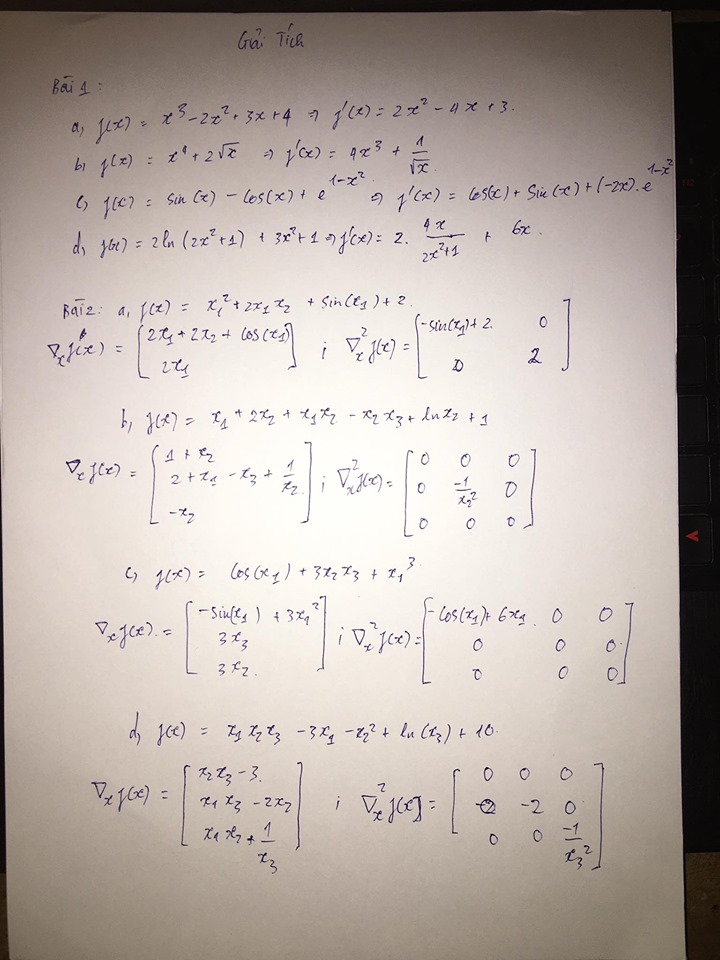 Giải Tích
Bài 1:
a, f(x) = x³ - 2x² + 3x + 4 ⇒ f'(x) = 2x² - 4x + 3.
b, f(x) = x⁴ + 2√x ⇒ f'(x) = 4x³ + 1/√x.
c, f(x) = sin(x) - cos(x) + e^(1-x²) ⇒ f'(x) = cos(x) + sin(x) + (-2x).e^(1-x²)
d, f(x) = 2ln(2x²+1) + 3x² + 1 ⇒ f'(x) = 2. 4x/(2x²+1) + 6x.
Bài 2: a, f(x) = x₁² + 2x₁x₂ + sin(x₁) + 2.
∇ₓf(x) = [2x₁ + 2x₂ + cos(x₁); 2x₁] ; ∇ₓ²f(x) = [-sin(x₁) + 2. 0; 0 2]
b, f(x) = x₁ + 2x₂ + x₁x₂ - x₂x₃ + ln x₂ + 1
∇ₓf(x) = [1 + x₂; 2 + x₁ - x₃ + 1/x₂; -x₂] ; ∇ₓ²f(x) = [0 0 0; 0 -1/x₂² 0; 0 0 0]
c, f(x) = cos(x₁) + 3x₂x₃ + x₁³
∇ₓf(x) = [-sin(x₁) + 3x₁²; 3x₃; 3x₂] ; ∇ₓ²f(x) = [-cos(x₁) + 6x₁ 0 0; 0 0 0; 0 0 0]
d, f(x) = x₁x₂x₃ - 3x₁ - x₂² + ln(x₃) + 10.
∇ₓf(x) = [x₂x₃ - 3; x₁x₃ - 2x₂; x₁x₂ + 1/x₃] ; ∇ₓ²f(x) = [0 0 0; 0 -2 0; 0 0 -1/x₃²]